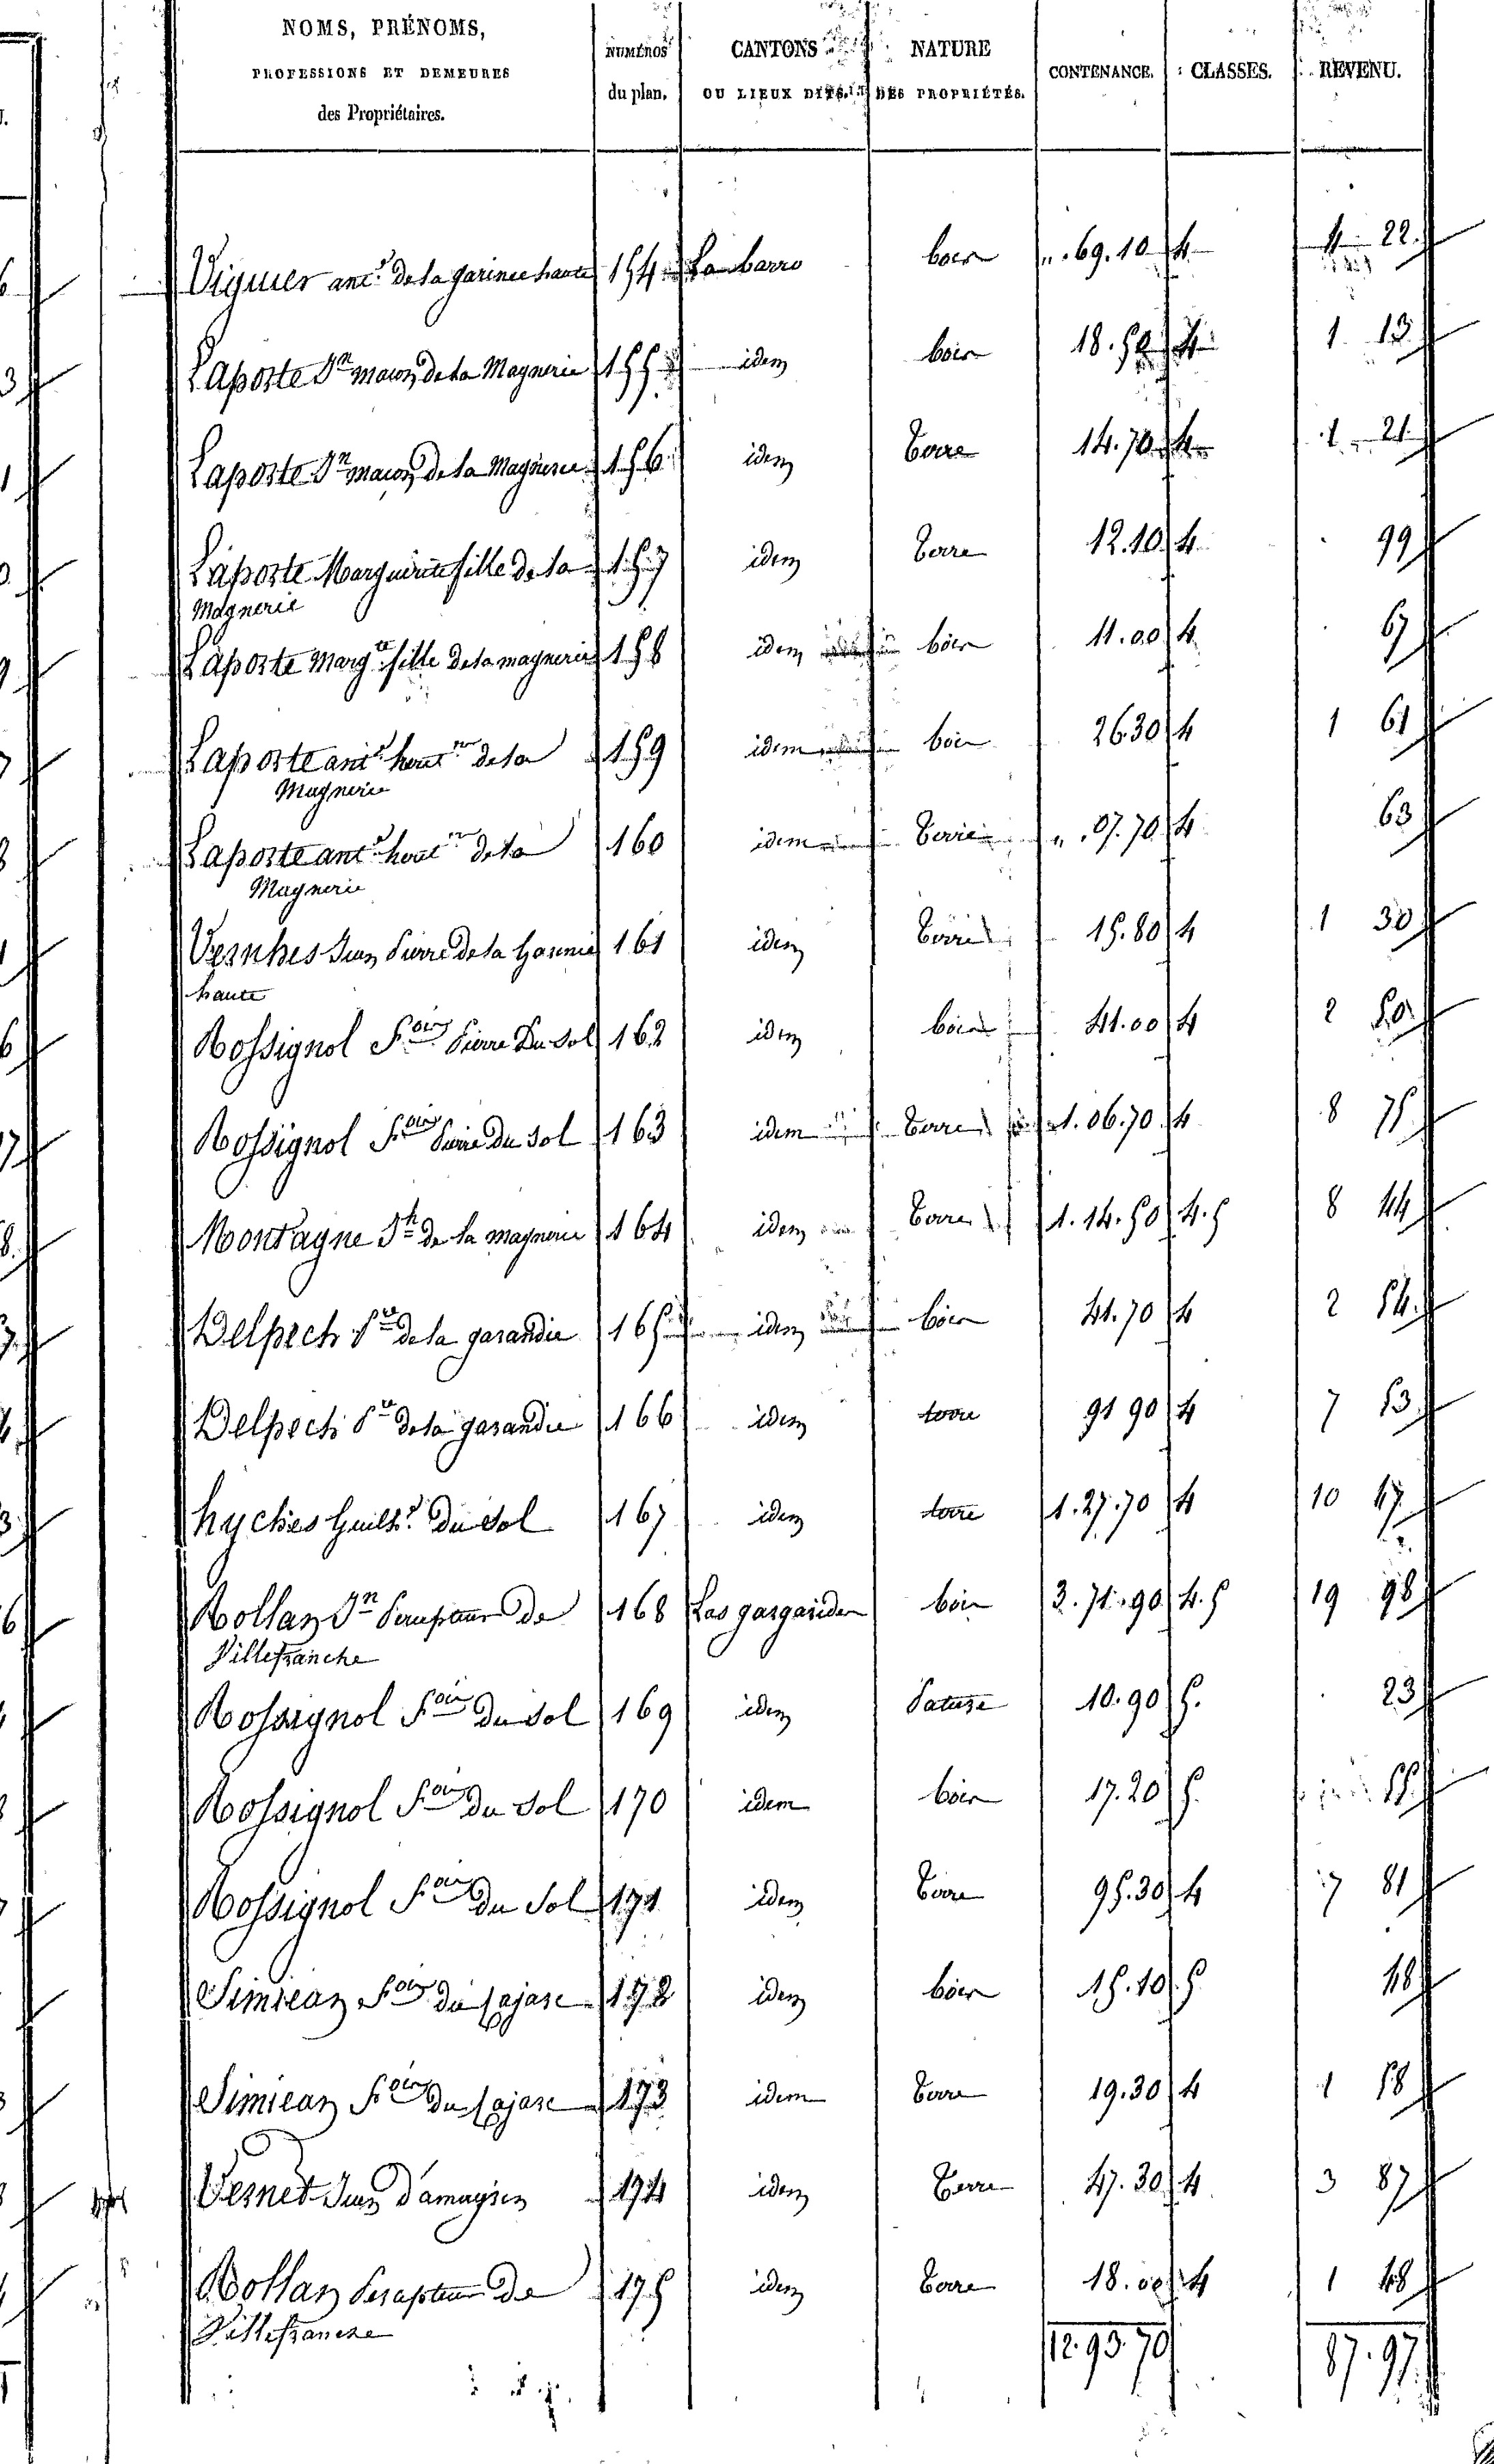 NOMS, PRÉNOMS, PROFESSIONS ET DEMEURES des Propriétaires. NUMÉROS du plan. CANTONS OU LIEUX DITS. NATURE DES PROPRIÉTÉS. CONTENANCE. CLASSES. REVENU.
Viguier ant. de la garinie haute 154 La barro bois 69.10 4 4 22
Laporte Jn macon de la Magnerie 155 idem bois 18.50 4 1 13
Laporte Jn macon de la Magnerie 156 idem terre 14.70 4 1 21
Laporte Marguerite fille de la 157 idem terre 12.10 4 99
Magnerie
Laporte Margte fille de la magnerie 158 idem bois 11.00 4 67
Laporte ant de la 159 idem bois 26 30 4 1 61
Magnerie
Laporte ant de la 160 idem terre 07.70 4 63
Magnerie
Vernhes Jean Pierre de la 161 idem terre 15.80 4 1 30
haute
Rossignol Fois Pierre Du Sol 162 idem bois 41.00 4 2 50
Rossignol Fois Pierre du Sol 163 idem terre 1.06.70 4 8 75
Montagne Jh de la magnerie 164 idem terre 1.14.50 4.5 8 44
Delpech Pre de la garandie 165 idem bois 41.70 4 2 54
Delpech Pre de la garandie 166 idem terre 91 90 4 7 53
hyches Guilh. Du Sol 167 idem terre 1.27.70 4 10 47
Rollan Jn Percepteur De 168 Las gargarides bois 3.71.90 4.5 19 98
Villefranche
Rossignol Fois du Sol 169 idem Pature 10.90 5. 23
Rossignol Fois du Sol 170 idem bois 17.20 5. 55
Rossignol Fois du Sol 171 idem terre 95.30 4 7 81
Simiean Fois du Cajarc 172 idem bois 15.10 5 48
Simiean Fois du Cajarc 173 idem terre 19.30 4 1 58
Vernet Jean D'amayrien 174 idem Terre 47.30 4 3 87
Rollan Percepteur De 175 idem terre 18.00 4 1 48
Villefranche
12.93.70 87.97